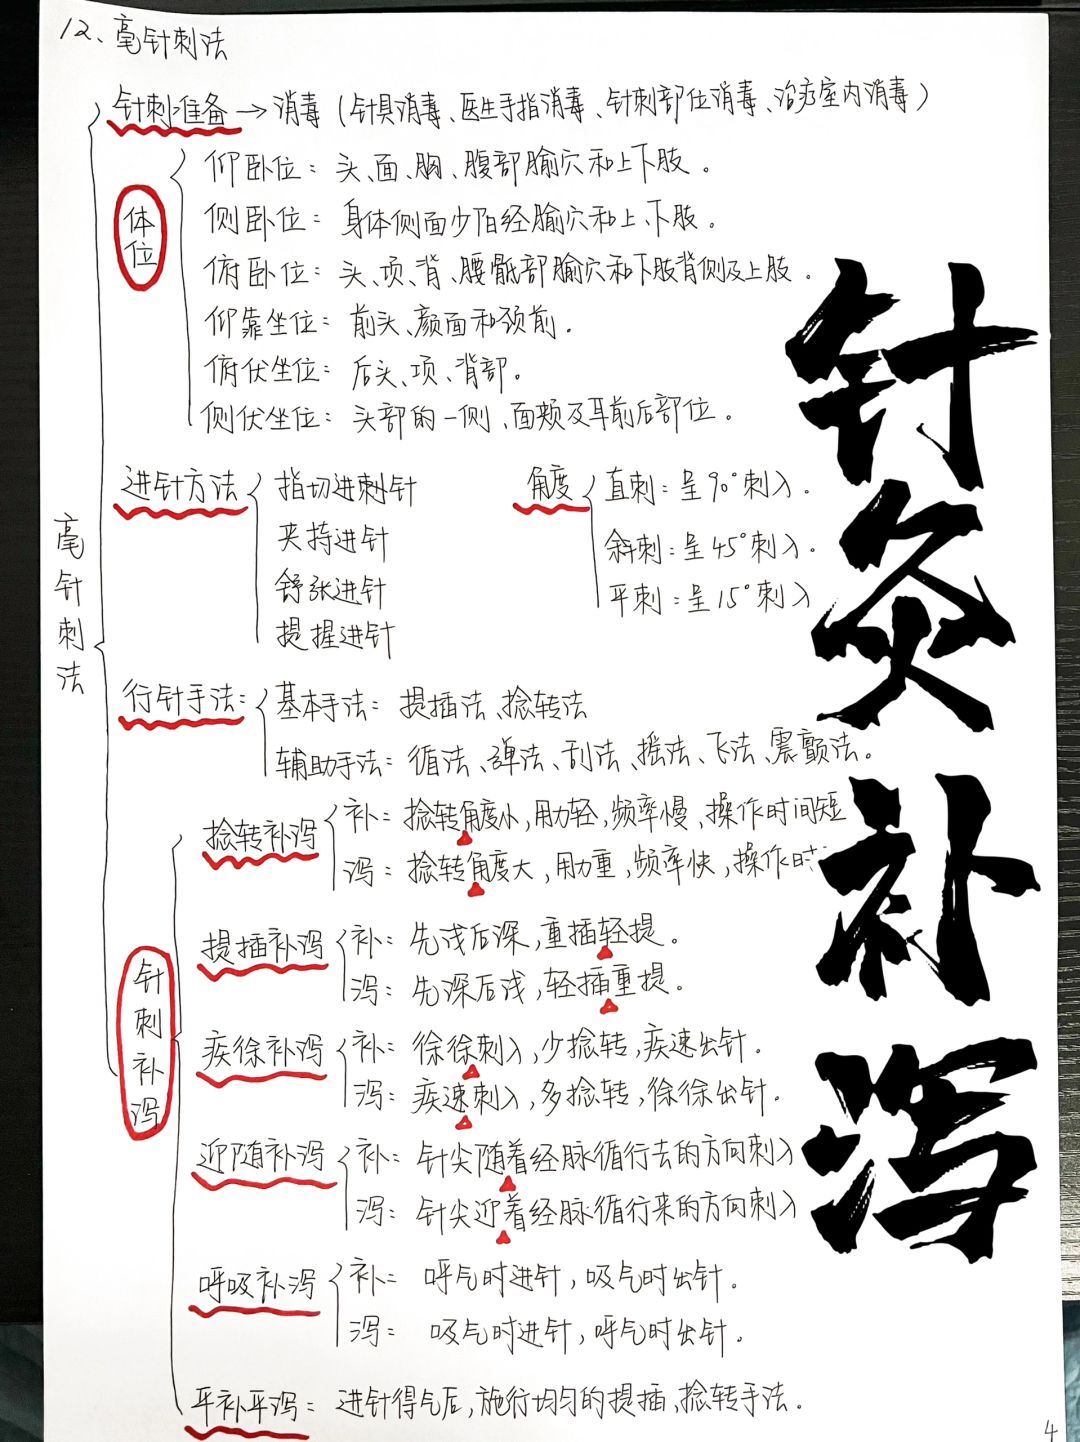 12、毫针刺法
针刺准备→消毒（针具消毒、医生手指消毒、针刺部位消毒、治疗室内消毒）
体位
仰卧位：头、面、胸、腹部腧穴和上下肢。
侧卧位：身体侧面少阳经腧穴和上、下肢。
俯卧位：头、项、背、腰骶部腧穴和下肢背侧及上肢。
仰靠坐位：前头、颜面和颈前。
俯伏坐位：后头、项、背部。
侧伏坐位：头部的一侧、面颊及耳前后部位。
毫针刺法
进针方法
指切进刺针
夹持进针
舒张进针
提捏进针
角度
直刺：呈90°刺入。
斜刺：呈45°刺入。
平刺：呈15°刺入
行针手法：
基本手法：提插法、捻转法
辅助手法：循法、弹法、刮法、摇法、飞法、震颤法。
针刺补泻
捻转补泻
补：捻转角度小，用力轻，频率慢、操作时间短
泻：捻转角度大，用力重，频率快，操作时
提插补泻
补：先浅后深，重插轻提。
泻：先深后浅，轻插重提。
疾徐补泻
补：徐徐刺入，少捻转，疾速出针。
泻：疾速刺入，多捻转，徐徐出针。
迎随补泻
补：针尖随着经脉循行去的方向刺入
泻：针尖迎着经脉循行来的方向刺入
呼吸补泻
补：呼气时进针，吸气时出针。
泻：吸气时进针，呼气时出针。
平补平泻：进针得气后，施行均匀的提插、捻转手法。
4
针灸补泻